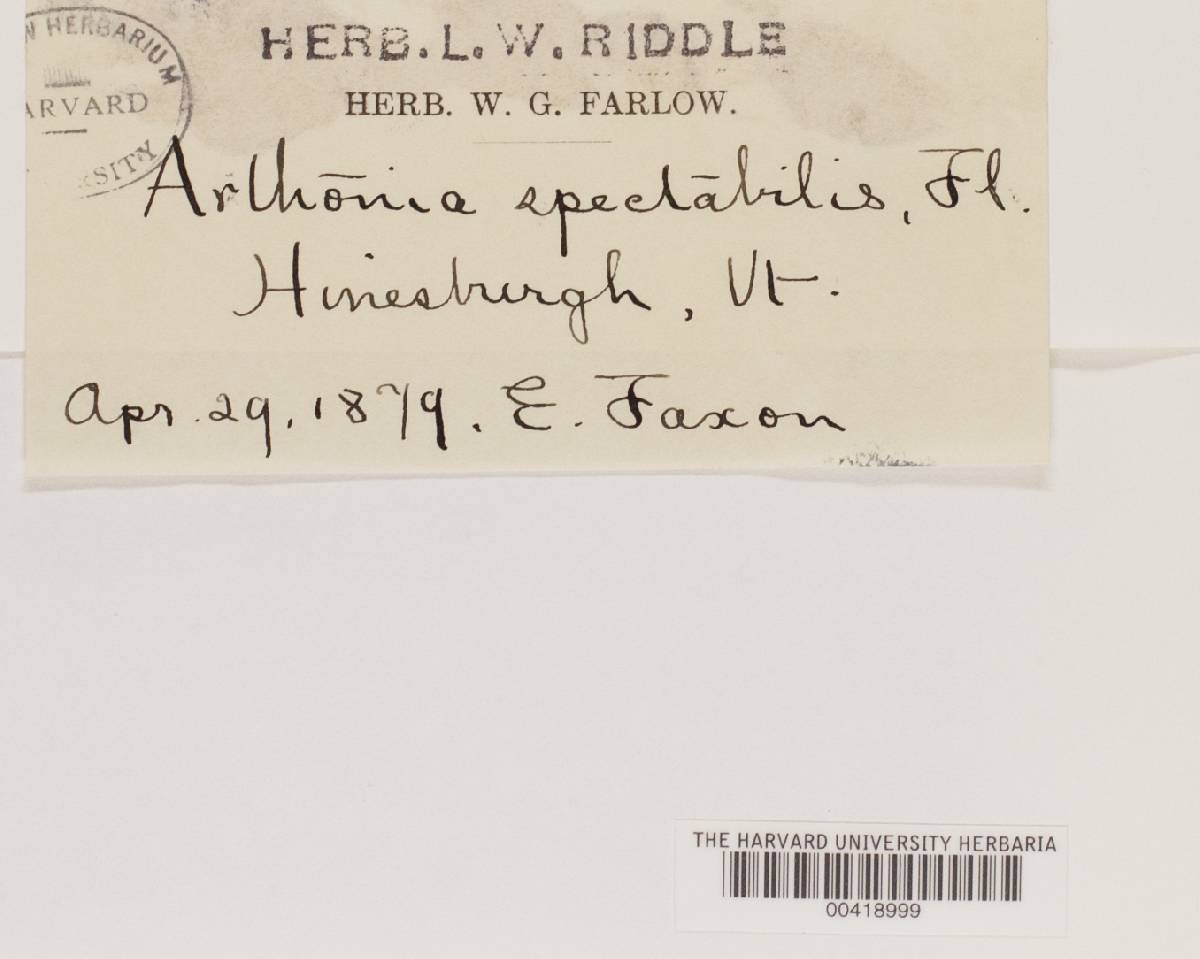 HERBARIUM
HARVARD
HERB. L. W. RIDDLE
HERB. W. G. FARLOW.
Arthōnia spectābilis, Fl.
Hinesburgh, Vt.
Apr. 29, 1879. E. Faxon
THE HARVARD UNIVERSITY HERBARIA
00418999